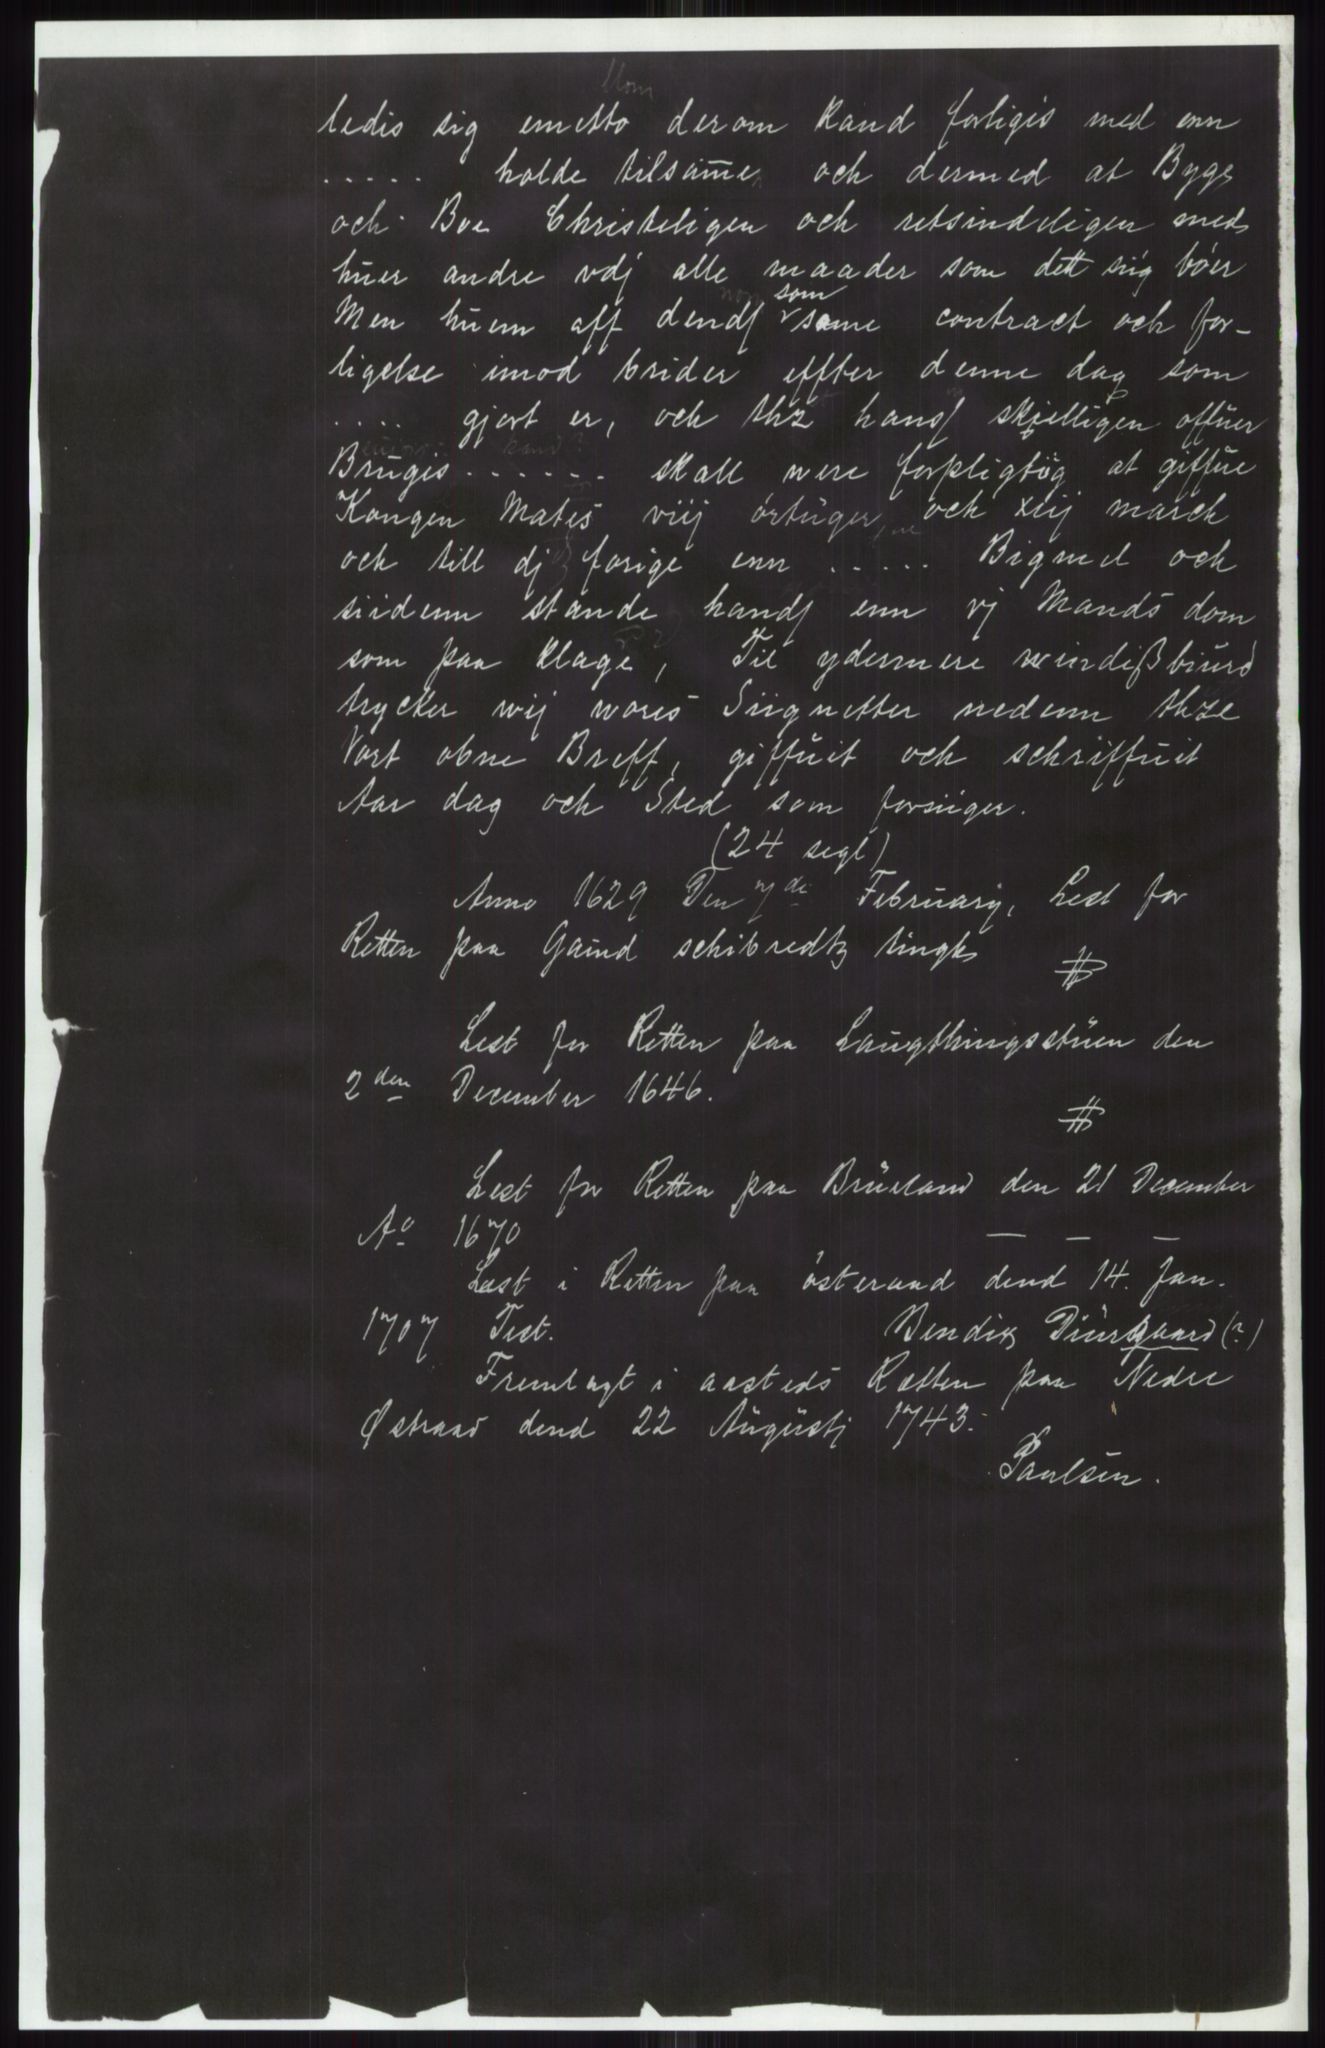 ledis sig emetto derom kand forligis med enn
..... holde tilsam̄en och dermed at Byge
och Boe Christeligen och retsindeligen med
huer andre vdj alle maader som dett siig bóer
Men huem aff dendſ som same contract och for-
ligelse imod brider effter denne dag som
.... gjort er, och thz hansſ skielligen offuer
Bruges ....... skall were forpligtög at giffue
Kongen Mates viij örtuger och xiij march
och till dj forige enn ..... Bigmel och
siidenn stande handſ enn vj Mands dom
som paa klage, Til ydermere windißbiurd
trycker wij wores Siignetter nedenn thze
Vort obne Breff, giffuit och schriffuit
Aar dag och Sted som forsiiger.
(24 segl)
Anno 1629 Den 7de February, Lest for
Retten paa Gaund schibredtz tingh
Lest for Retten paa Laugthingsstuen den
2den December 1646.
Lest for Retten paa Brueland den 21 December
Ao 1670 — — —
Læst i Retten paa österaad dend 14. Jan.
1707 Test. Bendix Diurgaard (?)
Fremlagt i aasteds Retten paa Nedre
Østraad dend 22 Augustj 1743.
Paulsen.